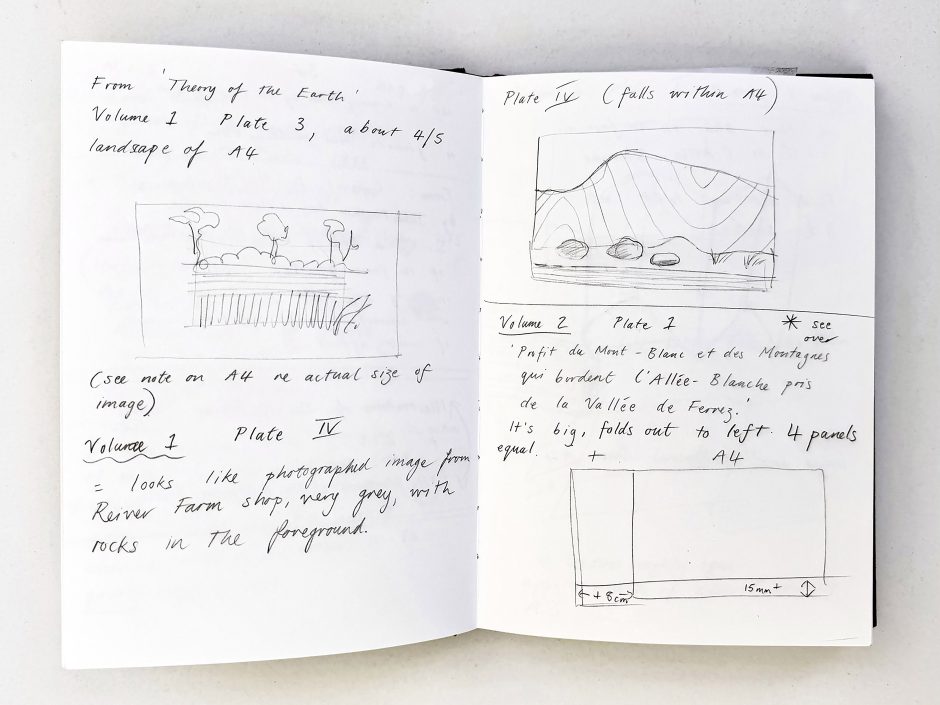 From 'Theory of the Earth'
Volume 1 Plate 3, about 4/5
landsape of A4
(see note on A4 re actual size of
image)
Volume 1 Plate IV
= looks like photographed image from
Reiver Farm shop, very grey, with
rocks in the foreground.
Plate IV (falls within A4)
Volume 2 Plate 1 * see
over
'Profit du Mont-Blanc et des Montagnes
qui bordent l'Allée-Blanche pris
de la Vallée de Ferrez.'
It's big, folds out to left. 4 panels
equal. + A4
+ 8cm
15mm +